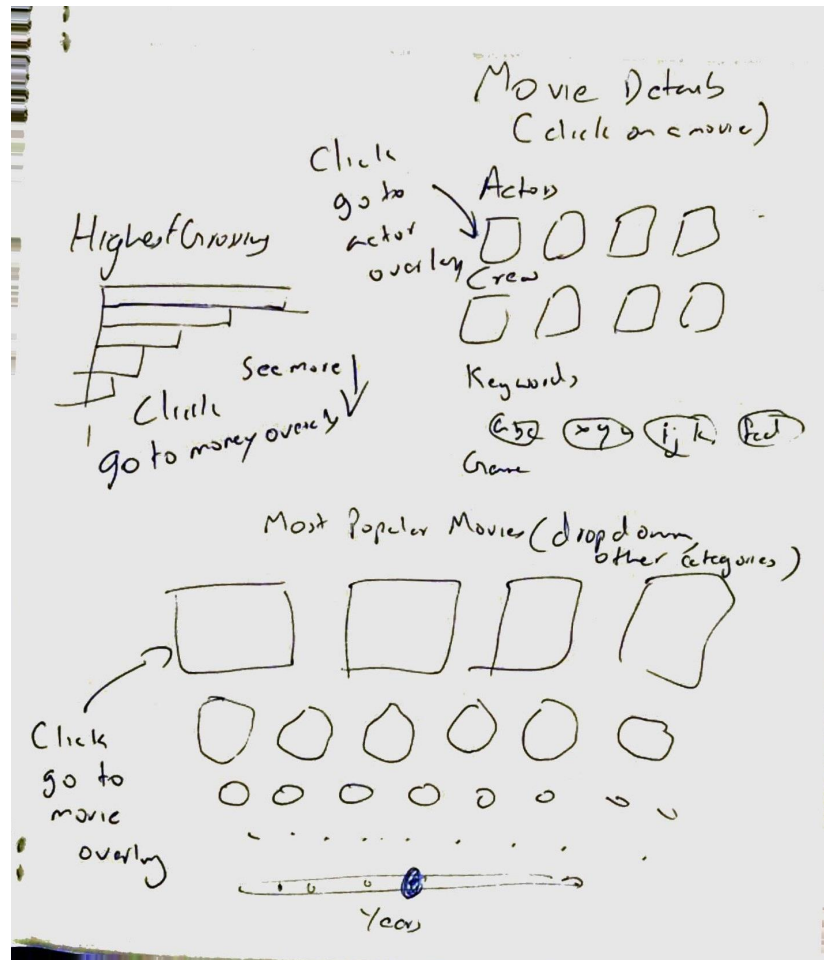 Movie Details
(click on a movie)
Click
go to
actor
overlay
Actors
Crew
Keywords
abc xyz ijk
Highest Grossing
See more
Click
go to money overlay
Most Popular Movies (dropdown,
other categories)
Click
go to
movie
overlay
Years